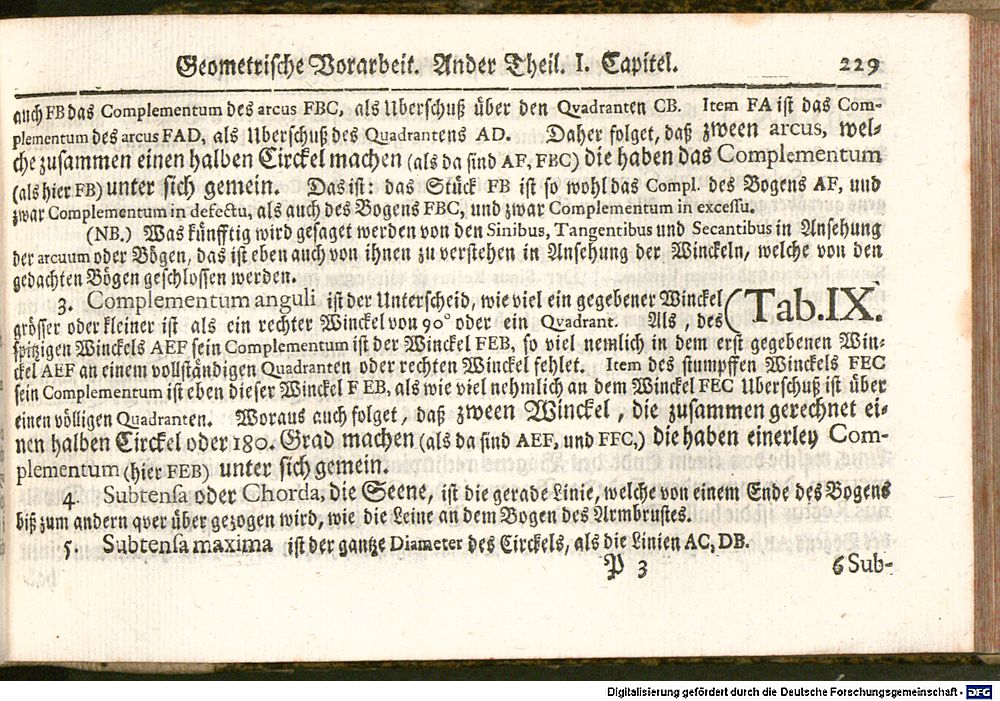 Geometrische Vorarbeit. Ander Theil. I. Capitel. 229
auch FB das Complementum des arcus FBC, als Uberschuß über den Qvadranten CB. Item FA ist das Com-
plementum des arcus FAD, als Uberschuß des Quadrantens AD. Daher folget, daß zween arcus, wel-
che zusammen einen halben Circkel machen (als da sind AF, FBC) die haben das Complementum
(als hier FB) unter sich gemein. Das ist: das Stück FB ist so wohl das Compl. des Bogens AF, und
zwar Complementum in defectu, als auch des Bogens FBC, und zwar Complementum in excessu.
(NB.) Was künfftig wird gesaget werden von den Sinibus, Tangentibus und Secantibus in Ansehung
der arcuum oder Bögen, das ist eben auch von ihnen zu verstehen in Ansehung der Winckeln, welche von den
gedachten Bögen geschlossen werden.
3. Complementum anguli ist der Unterscheid, wie viel ein gegebener Winckel (Tab. IX.
grösser oder kleiner ist als ein rechter Winckel von 90° oder ein Qvadrant. Als, des
spitzigen Winckels AEF sein Complementum ist der Winckel FEB, so viel nemlich in dem erst gegebenen Win-
ckel AEF an einem vollständigen Quadranten oder rechten Winckel fehlet. Item des stumpffen Winckels FEC
sein Complementum ist eben dieser Winckel FEB, als wie viel nehmlich an dem Winckel FEC Uberschuß ist über
einen völligen Quadranten. Woraus auch folget, daß zween Winckel, die zusammen gerechnet ei-
nen halben Circkel oder 180. Grad machen (als da sind AEF, und FFC,) die haben einerley Com-
plementum (hier FEB) unter sich gemein.
4. Subtensa oder Chorda, die Seene, ist die gerade Linie, welche von einem Ende des Bogens
biß zum andern qver über gezogen wird, wie die Leine an dem Bogen des Armbrustes.
5. Subtensa maxima ist der gantze Diameter des Circkels, als die Linien AC, DB.
P 3 6 Sub-
Digitalisierung gefördert durch die Deutsche Forschungsgemeinschaft - DFG